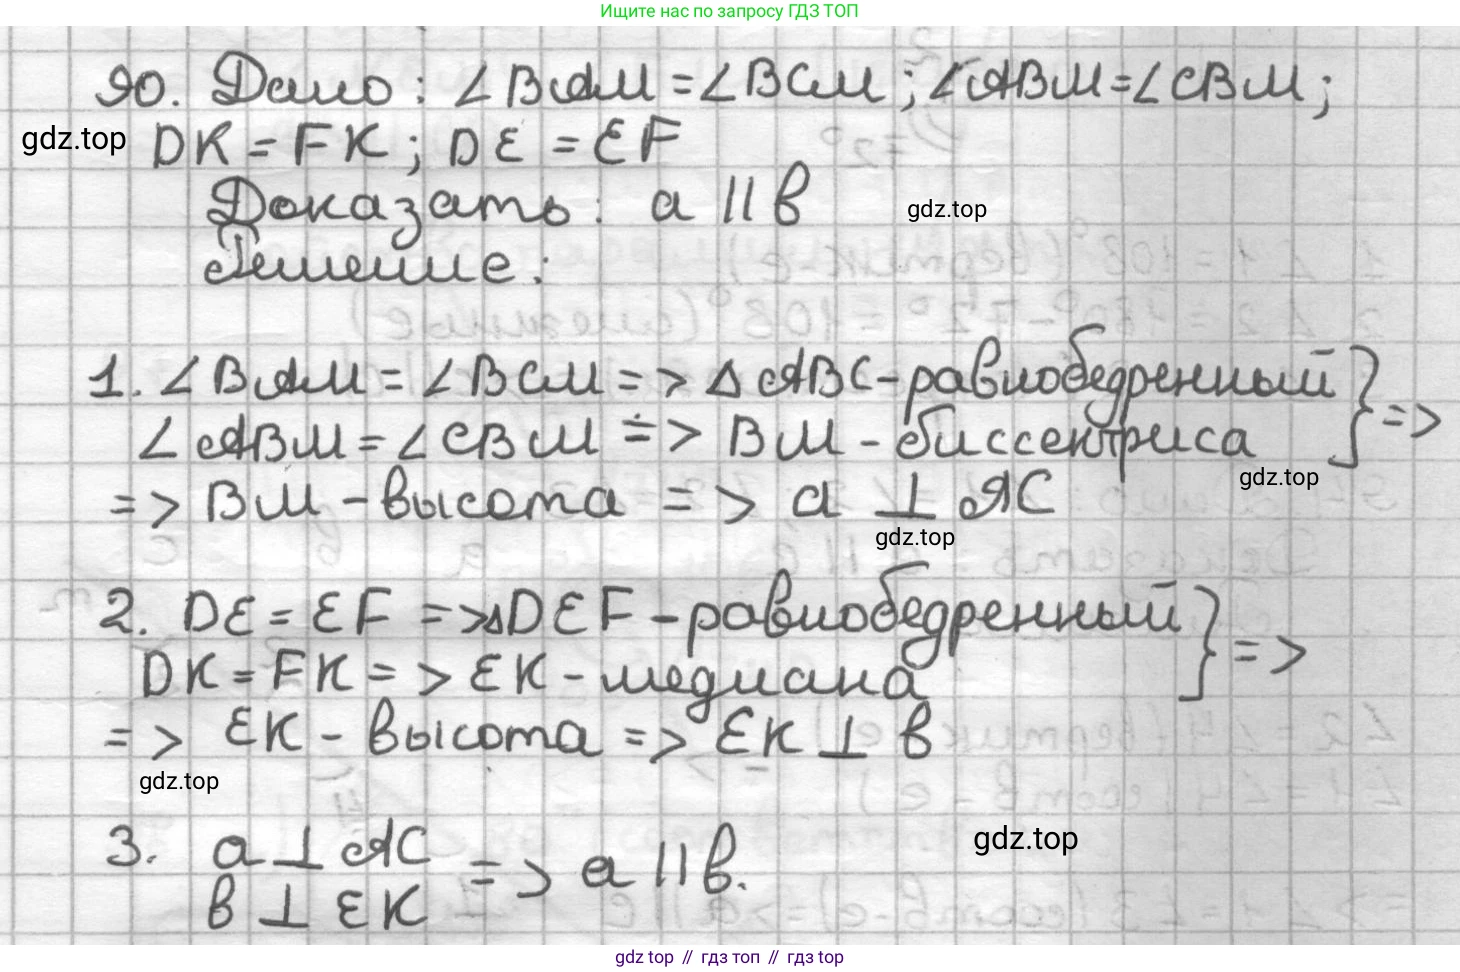 Ищите нас по запросу ГДЗ ТОП
90. Дано: ∠BAM = ∠BCM; ∠ABM = ∠CBM;
gdz.top
DK = FK; DE = EF
Доказать: a || b
gdz.top
Решение:
1. ∠BAM = ∠BCM => △ABC - равнобедренный } =>
∠ABM = ∠CBM => BM - биссектриса
gdz.top
=> BM - высота => a ⊥ AC
gdz.top
2. DE = EF => △DEF - равнобедренный } =>
DK = FK => EK - медиана
=> EK - высота => EK ⊥ b
gdz.top
3. a ⊥ AC
b ⊥ EK => a || b.
gdz.top
gdz top // гдз топ // гдз top